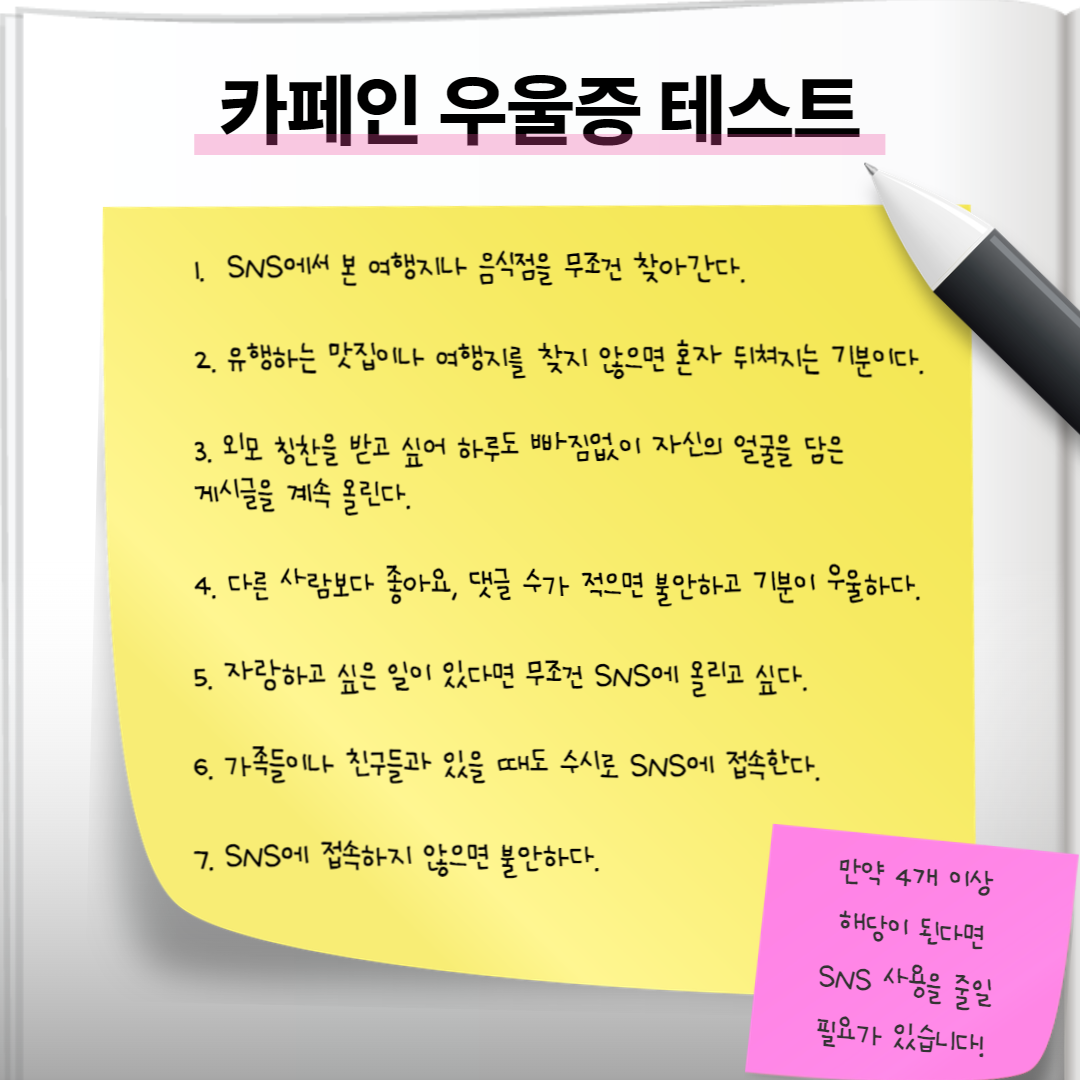 카페인 우울증 테스트
1. SNS에서 본 여행지나 음식점을 무조건 찾아간다.
2. 유행하는 맛집이나 여행지를 찾지 않으면 혼자 뒤쳐지는 기분이다.
3. 외모 칭찬을 받고 싶어 하루도 빠짐없이 자신의 얼굴을 담은
게시글을 계속 올린다.
4. 다른 사람보다 좋아요, 댓글 수가 적으면 불안하고 기분이 우울하다.
5. 자랑하고 싶은 일이 있다면 무조건 SNS에 올리고 싶다.
6. 가족들이나 친구들과 있을 때도 수시로 SNS에 접속한다.
7. SNS에 접속하지 않으면 불안하다.
만약 4개 이상
해당이 된다면
SNS 사용을 줄일
필요가 있습니다!